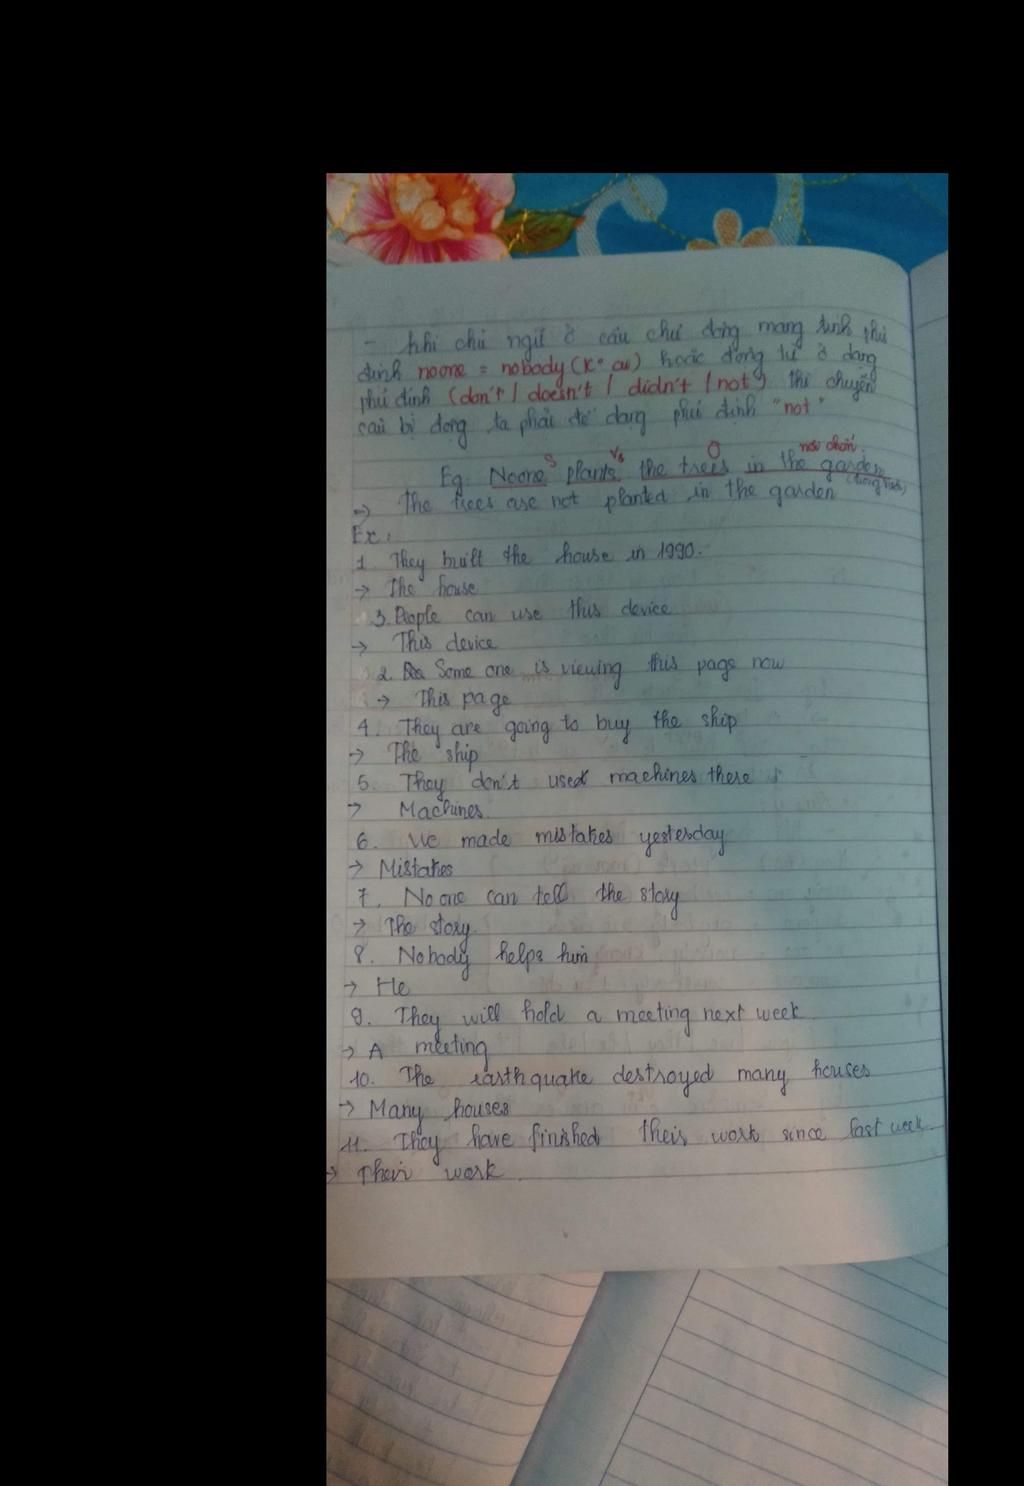 - khi chủ ngữ ở câu chủ động mang tính phủ
định noone = nobody (k° ai) hoặc động từ ở dạng
phủ định (don't / doesn't / didn't / not) thì chuyển
câu bị động ta phải để dạng phủ định "not"
S V₅ O nơi chốn
Eg: Noone plants the trees in the garden
→ The trees are not planted in the garden
Ex:
1 They built the house in 1990.
→ The house
3. People can use this device
→ This device
2. Some one is viewing this page now
→ This page
4. They are going to buy the ship
→ The ship
5. They don't used machines there
→ Machines.
6. We made mistakes yesterday
→ Mistakes
7. No one can tell the story
→ The story
8. Nobody helps him
→ He
9. They will hold a meeting next week.
→ A meeting
10. The earthquake destroyed many houses
→ Many houses
11. They have finished their work since last week.
→ Their work.